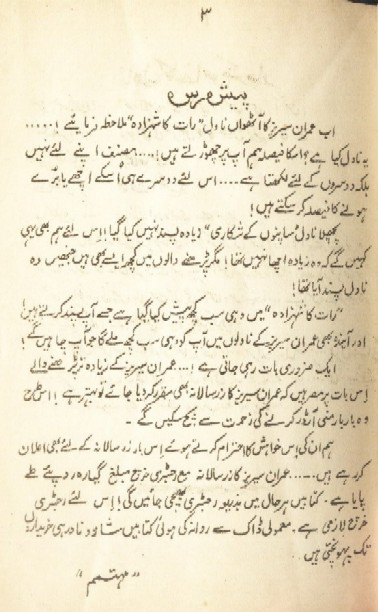 ۳
پیش رس
اب عمران سیریز کا آٹھواں ناول "رات کا شہزادہ" ملاحظہ فرمایئے !.....
یہ ناول کیا ہے؟ اسکا فیصلہ ہم آپ پر چھوڑتے ہیں!.... مصنف اپنے لئے نہیں
بلکہ دوسروں کے لئے لکھتا ہے.... اس لئے دوسرے ہی اسکے اچھے یا بُرے
ہونے کا فیصلہ کر سکتے ہیں!
پچھلا ناول "سانپوں کے شکاری" زیادہ پسند نہیں کیا گیا! اس لئے ہم بھی یہی
کہیں گے کہ وہ زیادہ اچھا نہیں تھا! مگر پڑھنے والوں میں کچھ ایسے بھی ہیں جنہیں وہ
ناول پسند آیا تھا!
"رات کا شہزادہ" میں وہی سب کچھ پیش کیا گیا ہے جسے آپ پسند کرتے ہیں!
اور آئندہ بھی عمران سیریز کے ناولوں میں آپ کو وہی سب کچھ ملے گا جو آپ چاہیں گے!
ایک ضروری بات رہی جاتی ہے!... عمران سیریز کے زیادہ تر پڑھنے والے
اِس بات پر مصر ہیں کہ عمران سیریز کا زر سالانہ بھی مقرر کر دیا جائے تو بہتر ہے! اس طرح
وہ بار بار منی آرڈر کرنے کی زحمت سے بچ سکیں گے -
ہم ان کی اِس خواہش کا احترام کرتے ہوئے اس بار زر سالانہ کے لئے بھی اعلان
کر رہے ہیں..... عمران سیریز کا زر سالانہ مع رجسٹری خرچ مبلغ گیارہ روپئے طے
پایا ہے. کتابیں ہر حال میں بذریعہ رجسٹری بھیجی جائیں گی! اِس لئے رجسٹری
خرچ لازمی ہے. معمولی ڈاک سے روانہ کی ہوئی کتابیں شاذ و نادر ہی خریداروں
تک پہونچتی ہیں..
"مہتمم"